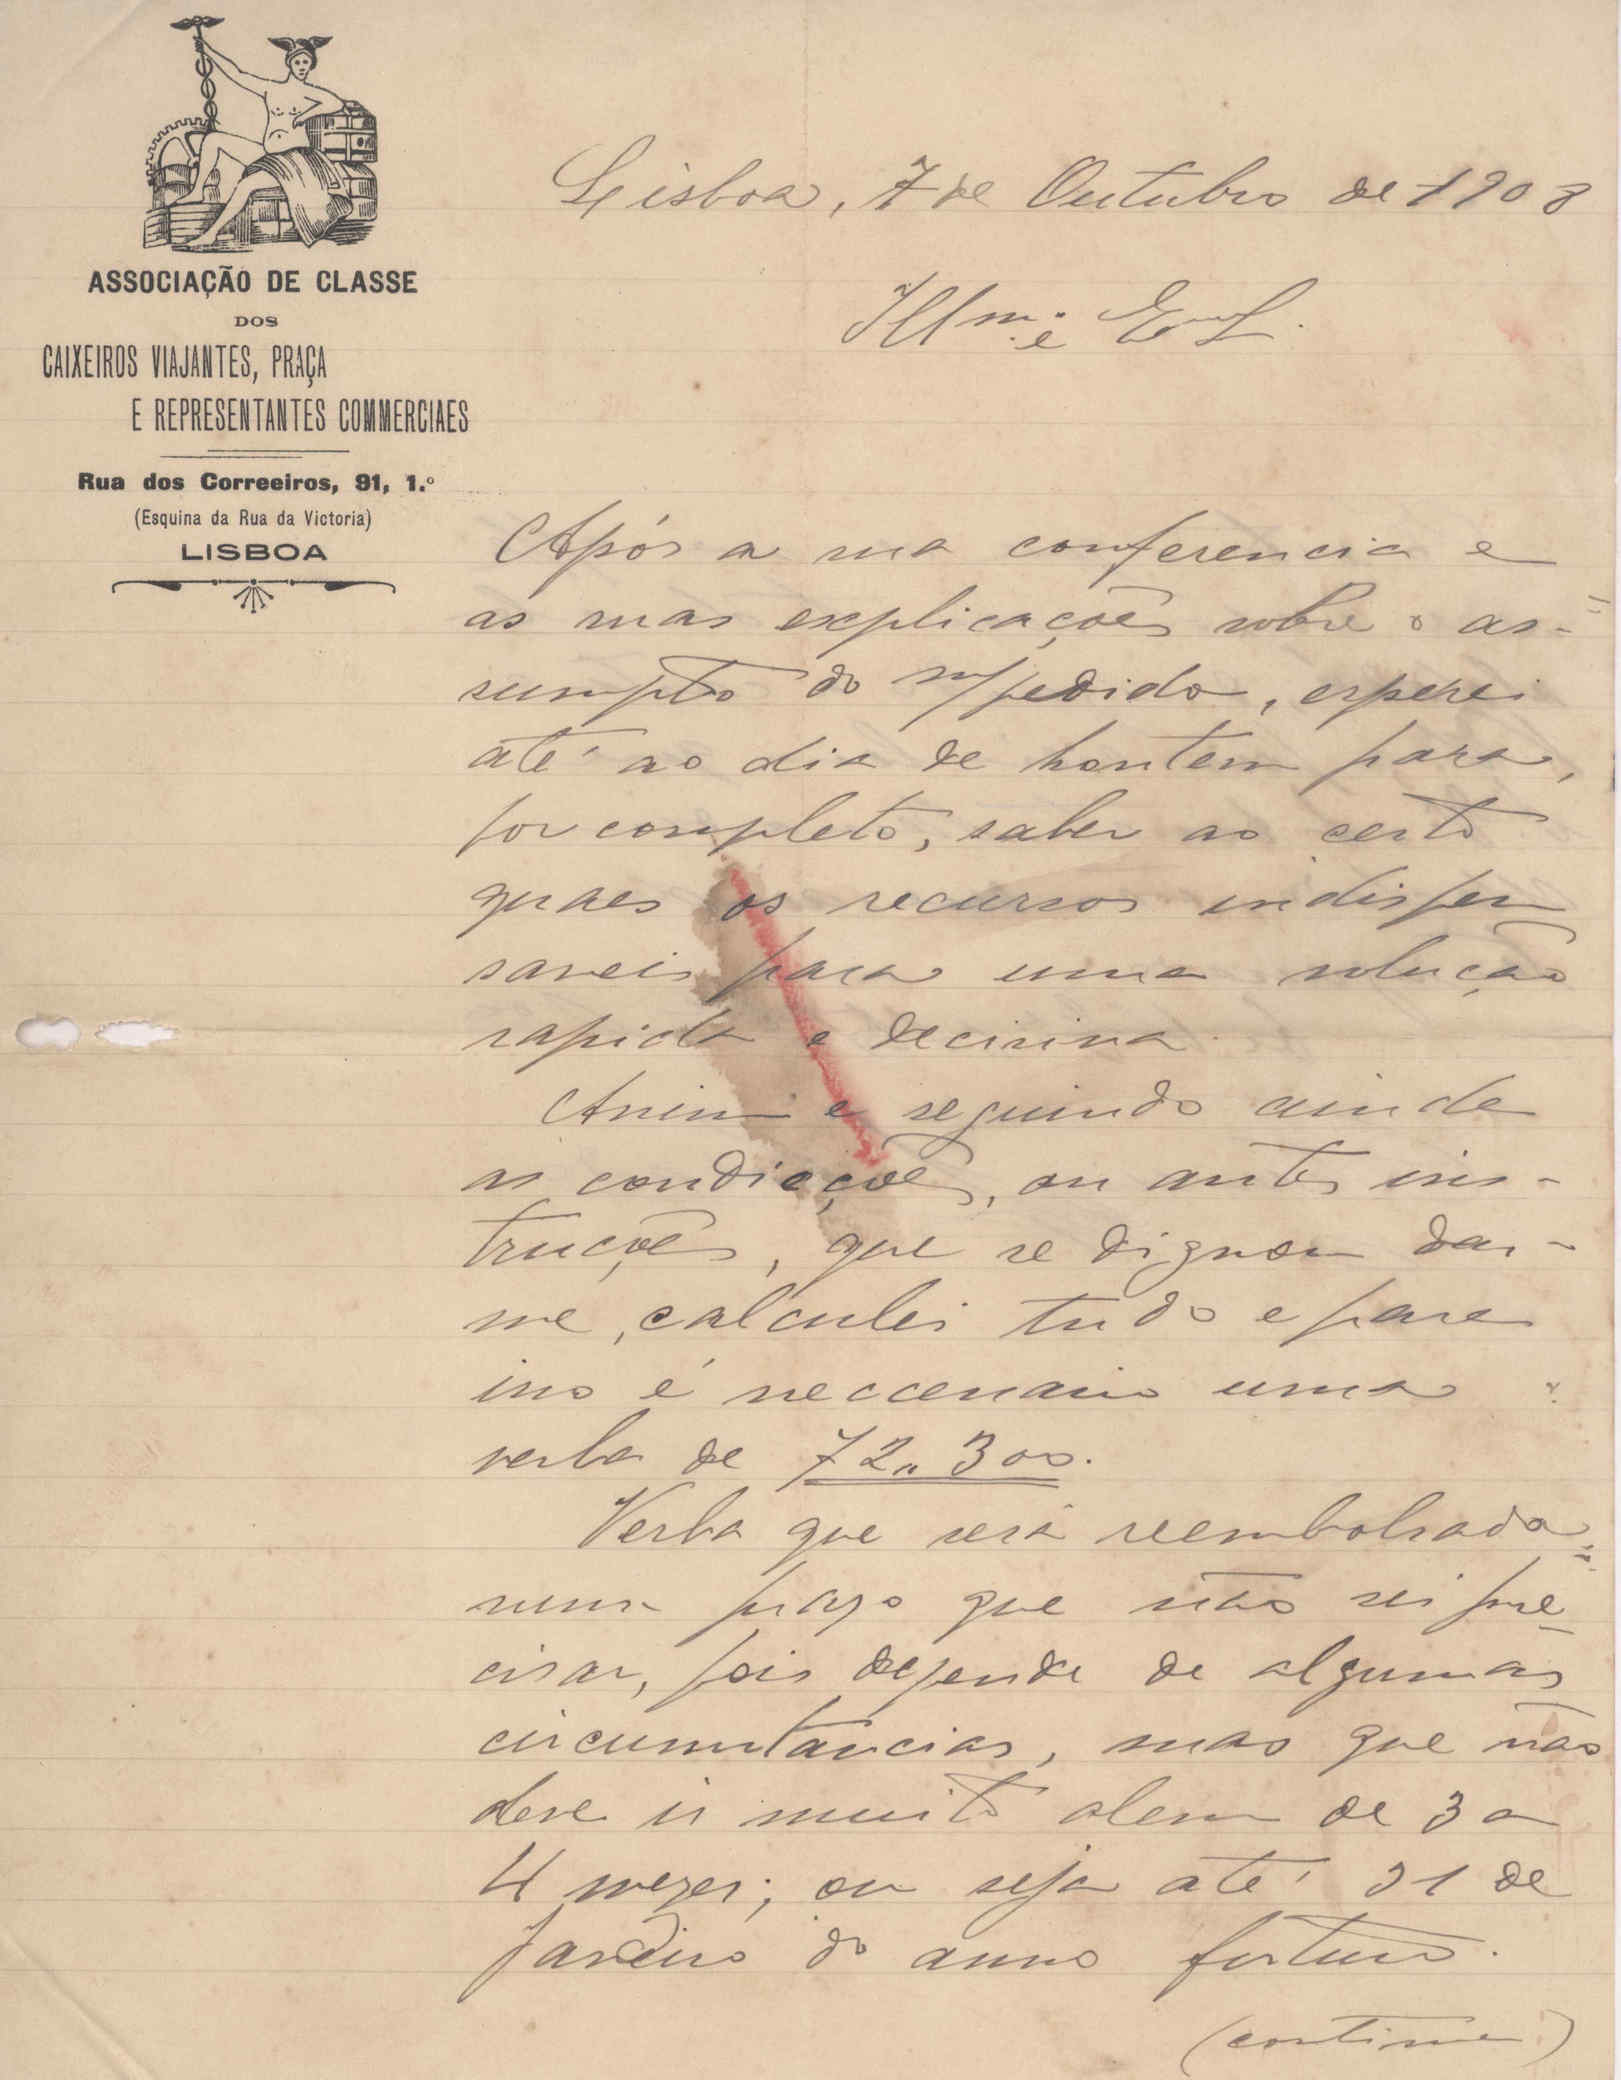 ASSOCIAÇÃO DE CLASSE
DOS
CAIXEIROS VIAJANTES, PRAÇA
E REPRESENTANTES COMMERCIAES
Rua dos Correeiros, 91, 1.º
(Esquina da Rua da Victoria)
LISBOA
Lisboa, 7 de Outubro de 1908
Illm.º e
Após a sua conferencia e
as suas explicações sobre o as-
sumpto do m/pedido, esperei
até ao dia de hontem para,
por completo, saber ao certo
quaes os recursos indispen
saveis para uma solução
rapida e decisiva.
Assim e seguindo ainda
as condicções, ou antes ins-
truções, que se dignou dar-
me, calculei tudo e para
isso é neccessario uma
verba de 72,,300.
Verba que será reembolsada,
num prazo que não sei pre
cisar, pois depende de algumas
circumstancias, mas que não
deve ir muito alem de 3 a
4 mezes; ou seja até 31 de
Janeiro do anno forturo.
(continua)